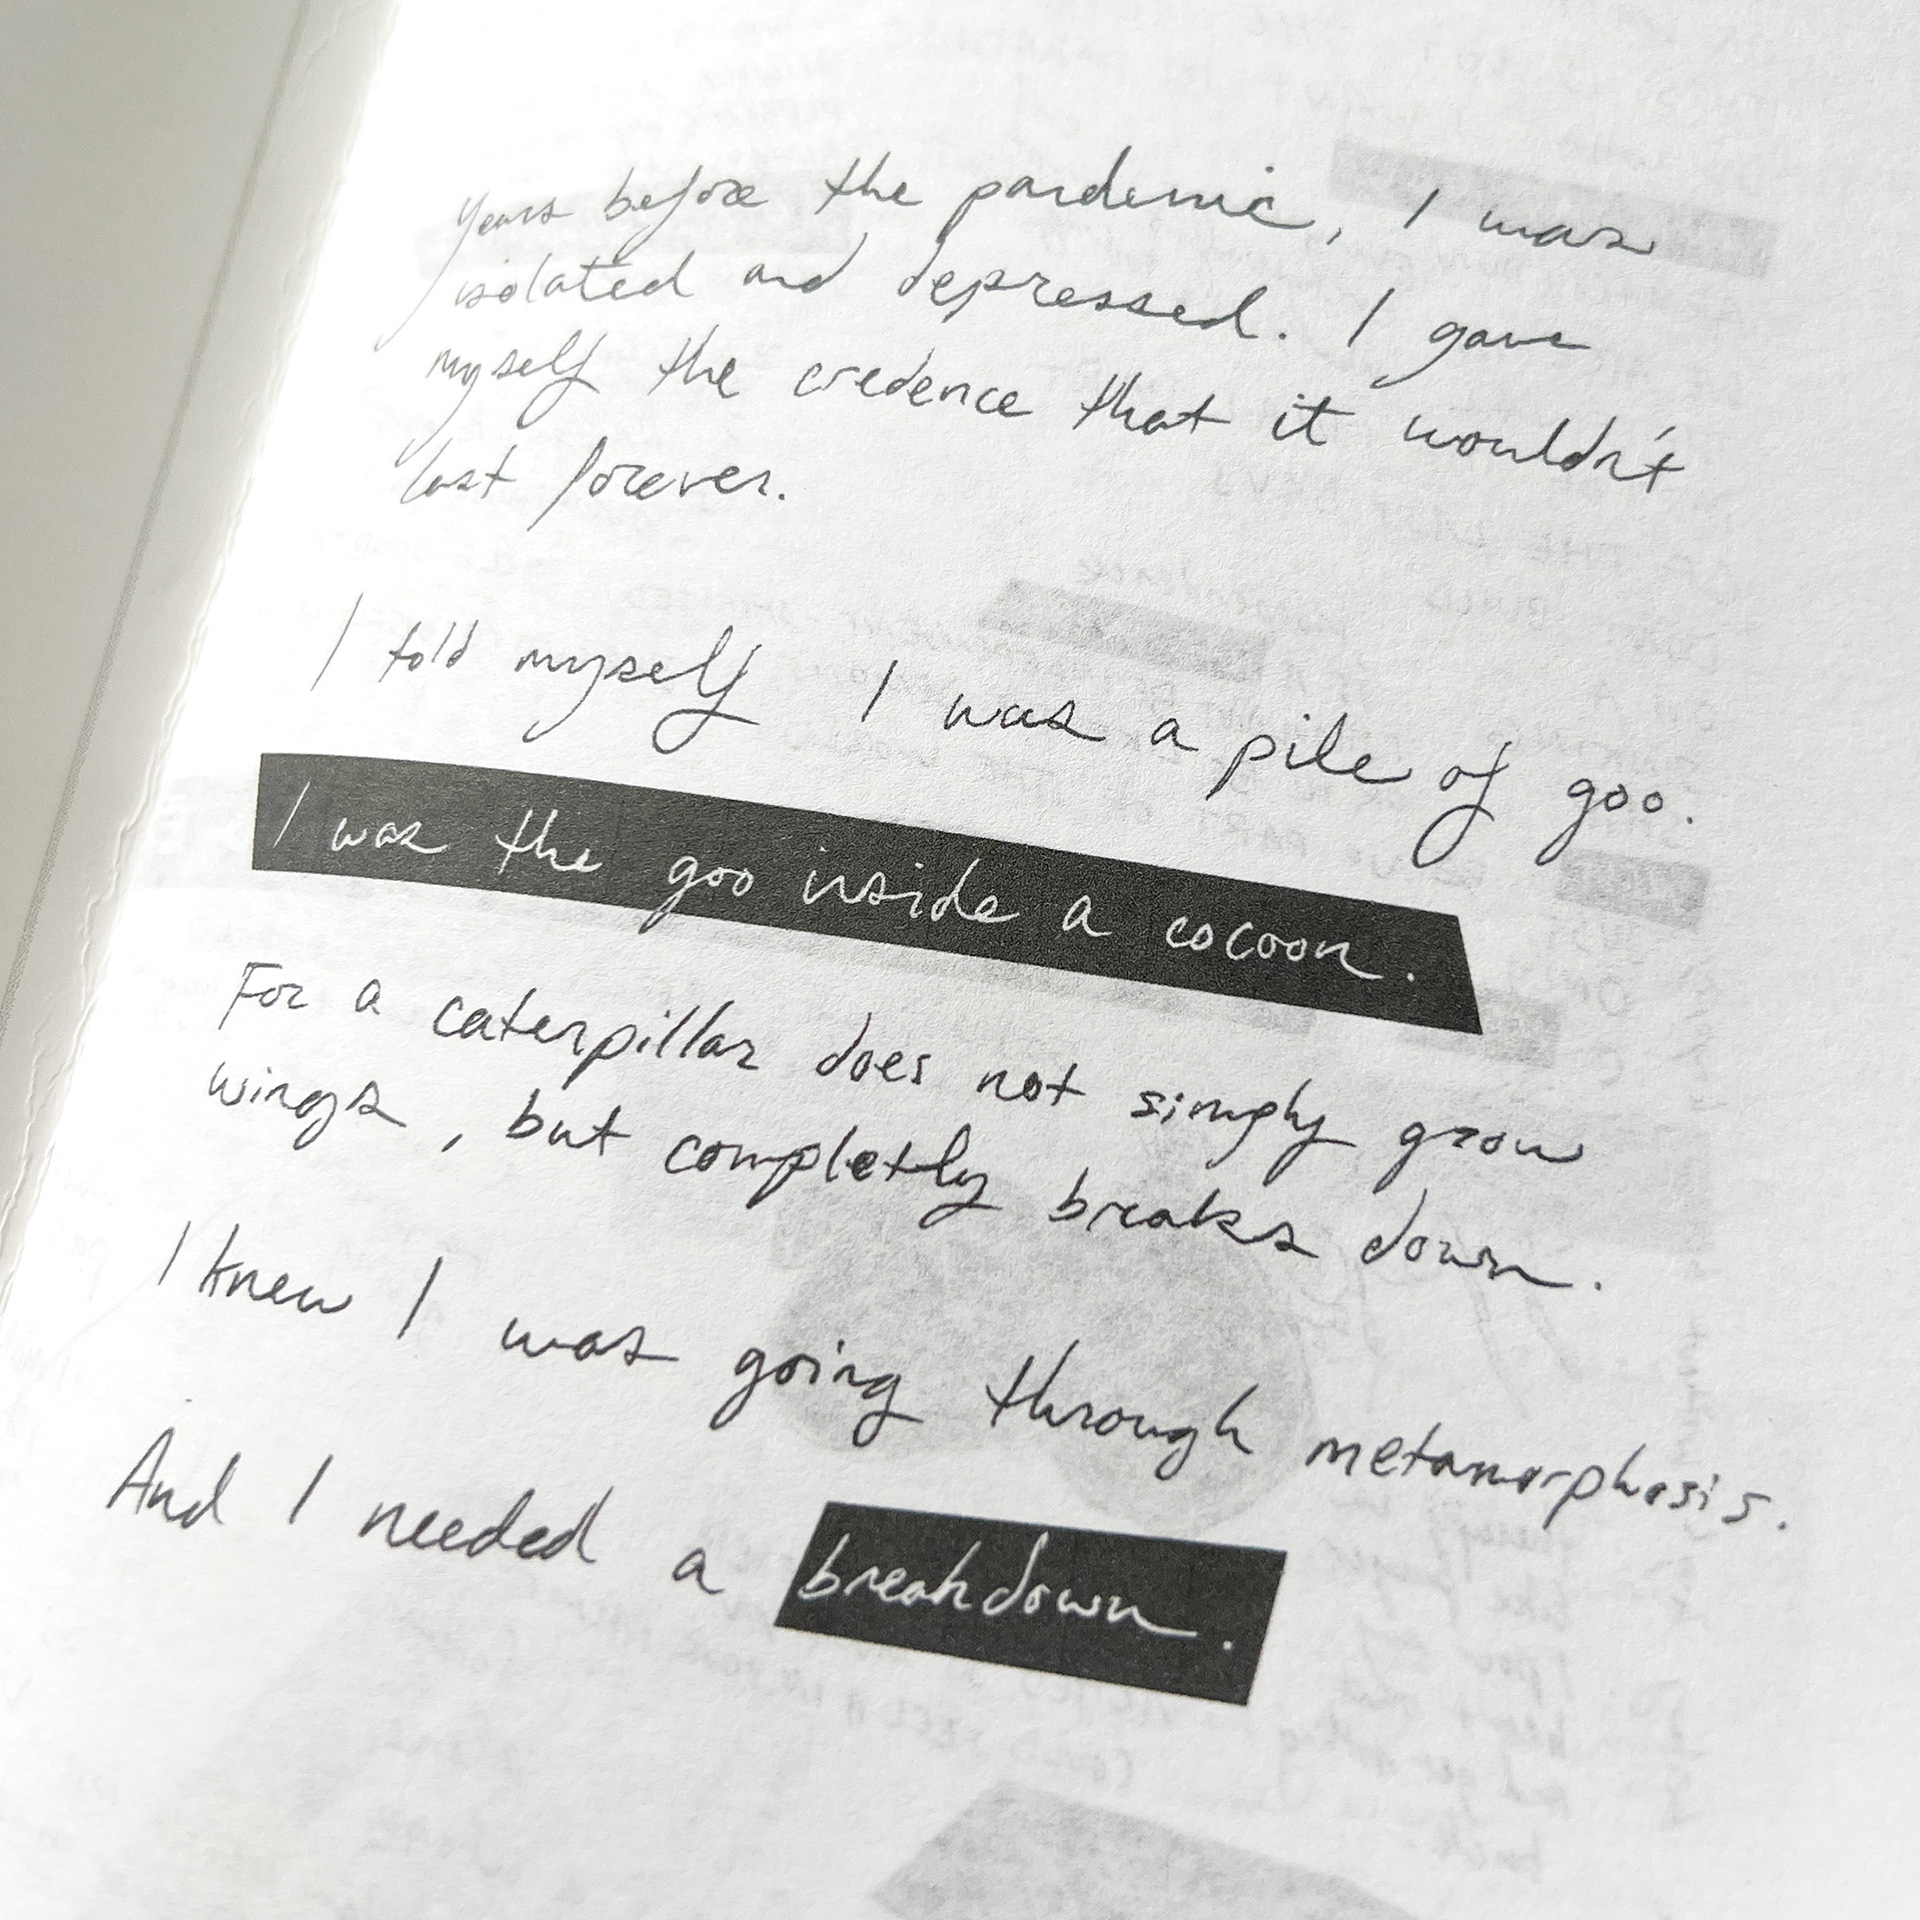 Years before the pandemic, I was
isolated and depressed. I gave
myself the credence that it wouldn't
last forever.
I told myself I was a pile of goo.
I was the goo inside a cocoon.
For a caterpillar does not simply grow
wings, but completly breaks down.
I knew I was going through metamorphosis.
And I needed a breakdown.